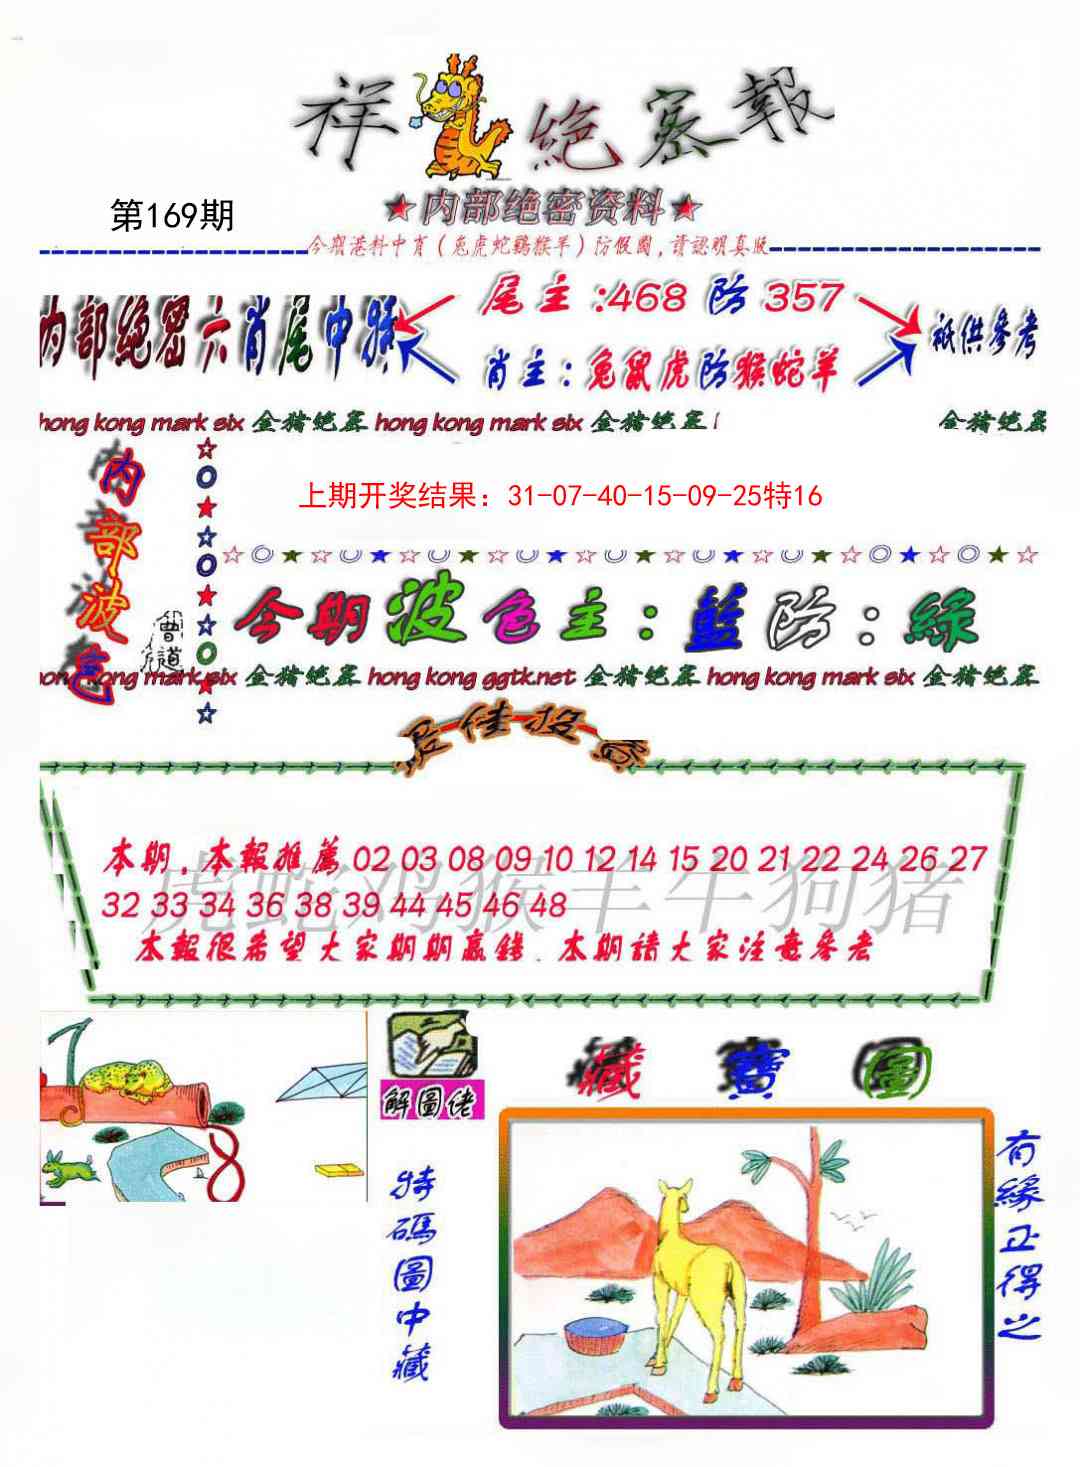 祥 絕密報
第169期
★内部绝密资料★
今期港料中肖(兔虎蛇鷄猴羊)防假圖,請認明真版
内部绝密六肖尾中特
尾主:468 防 357
肖主:兔鼠虎防猴蛇羊
祇供參考
hong kong mark six 金猪绝密 hong kong mark six 金猪绝密
金猪绝密
内部波色
上期开奖结果:31-07-40-15-09-25特16
曾道
今期波色主:藍防:綠
hong kong mark six 金猪绝密 hong kong ggtk.net 金猪绝密 hong kong mark six 金猪绝密
最佳投资
虎蛇鸡猴羊牛狗猪
本期,本報推薦 02 03 08 09 10 12 14 15 20 21 22 24 26 27
32 33 34 36 38 39 44 45 46 48
本報很希望大家期期贏錢.本期請大家注意參考
解圖佬
藏寶圖
特碼圖中藏
有緣正得之